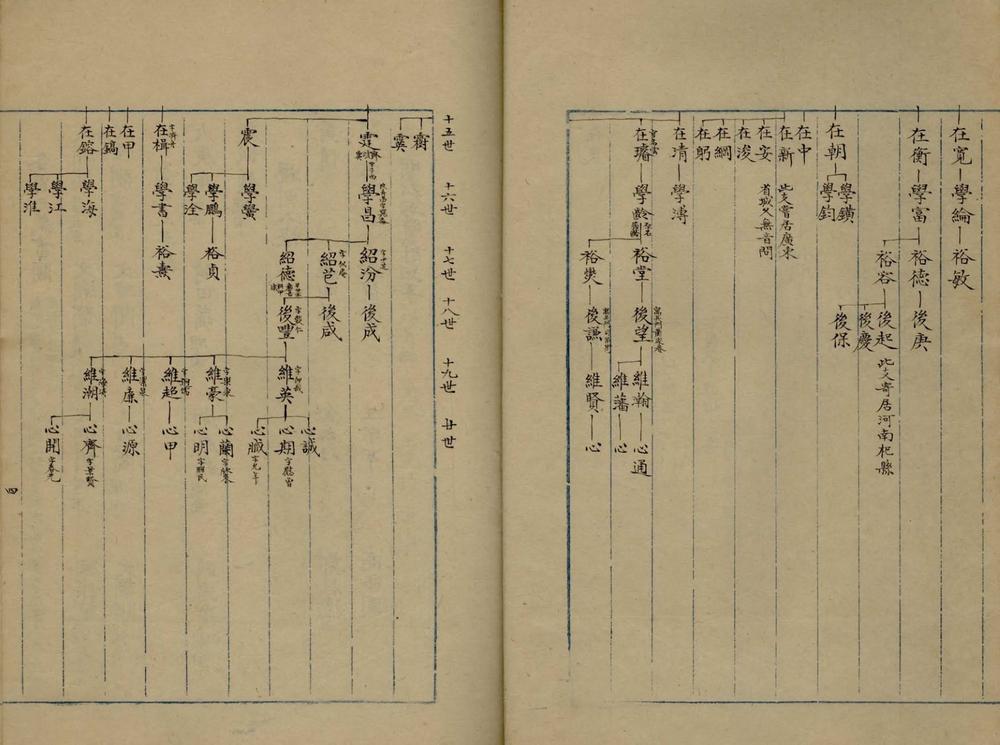 在寬 學綸 裕敏
在衡 學富 裕德 後庚
裕谷 後起 此支寄居河南杞縣
後慶
後保
在朝 學鑛
學鈞
在中
在新 此支嘗居廣東
在安 省城久無音問
在浚
在綱
在躬
在清 學溥
在璿 學齡 裕堂 後望 維瀚 心通
維藩 心
裕爕 後謙 維賢 心
十五世 十六世 十七世 十八世 十九世 廿世
澍
霙
霆 學昌 紹汾 後成
紹芑 後咸
紹德 後豐 維英 心誠
心期
心臧
維豪 心蘭
心明 字輝民
維超 心甲
維廉 心源
維潮 心齊
心開 字春光
震 學蠻
學鵬 裕貞
學洤
在楫 學書 裕燾
在甲
在鎬
在鎔 學海
學江
學淮
四